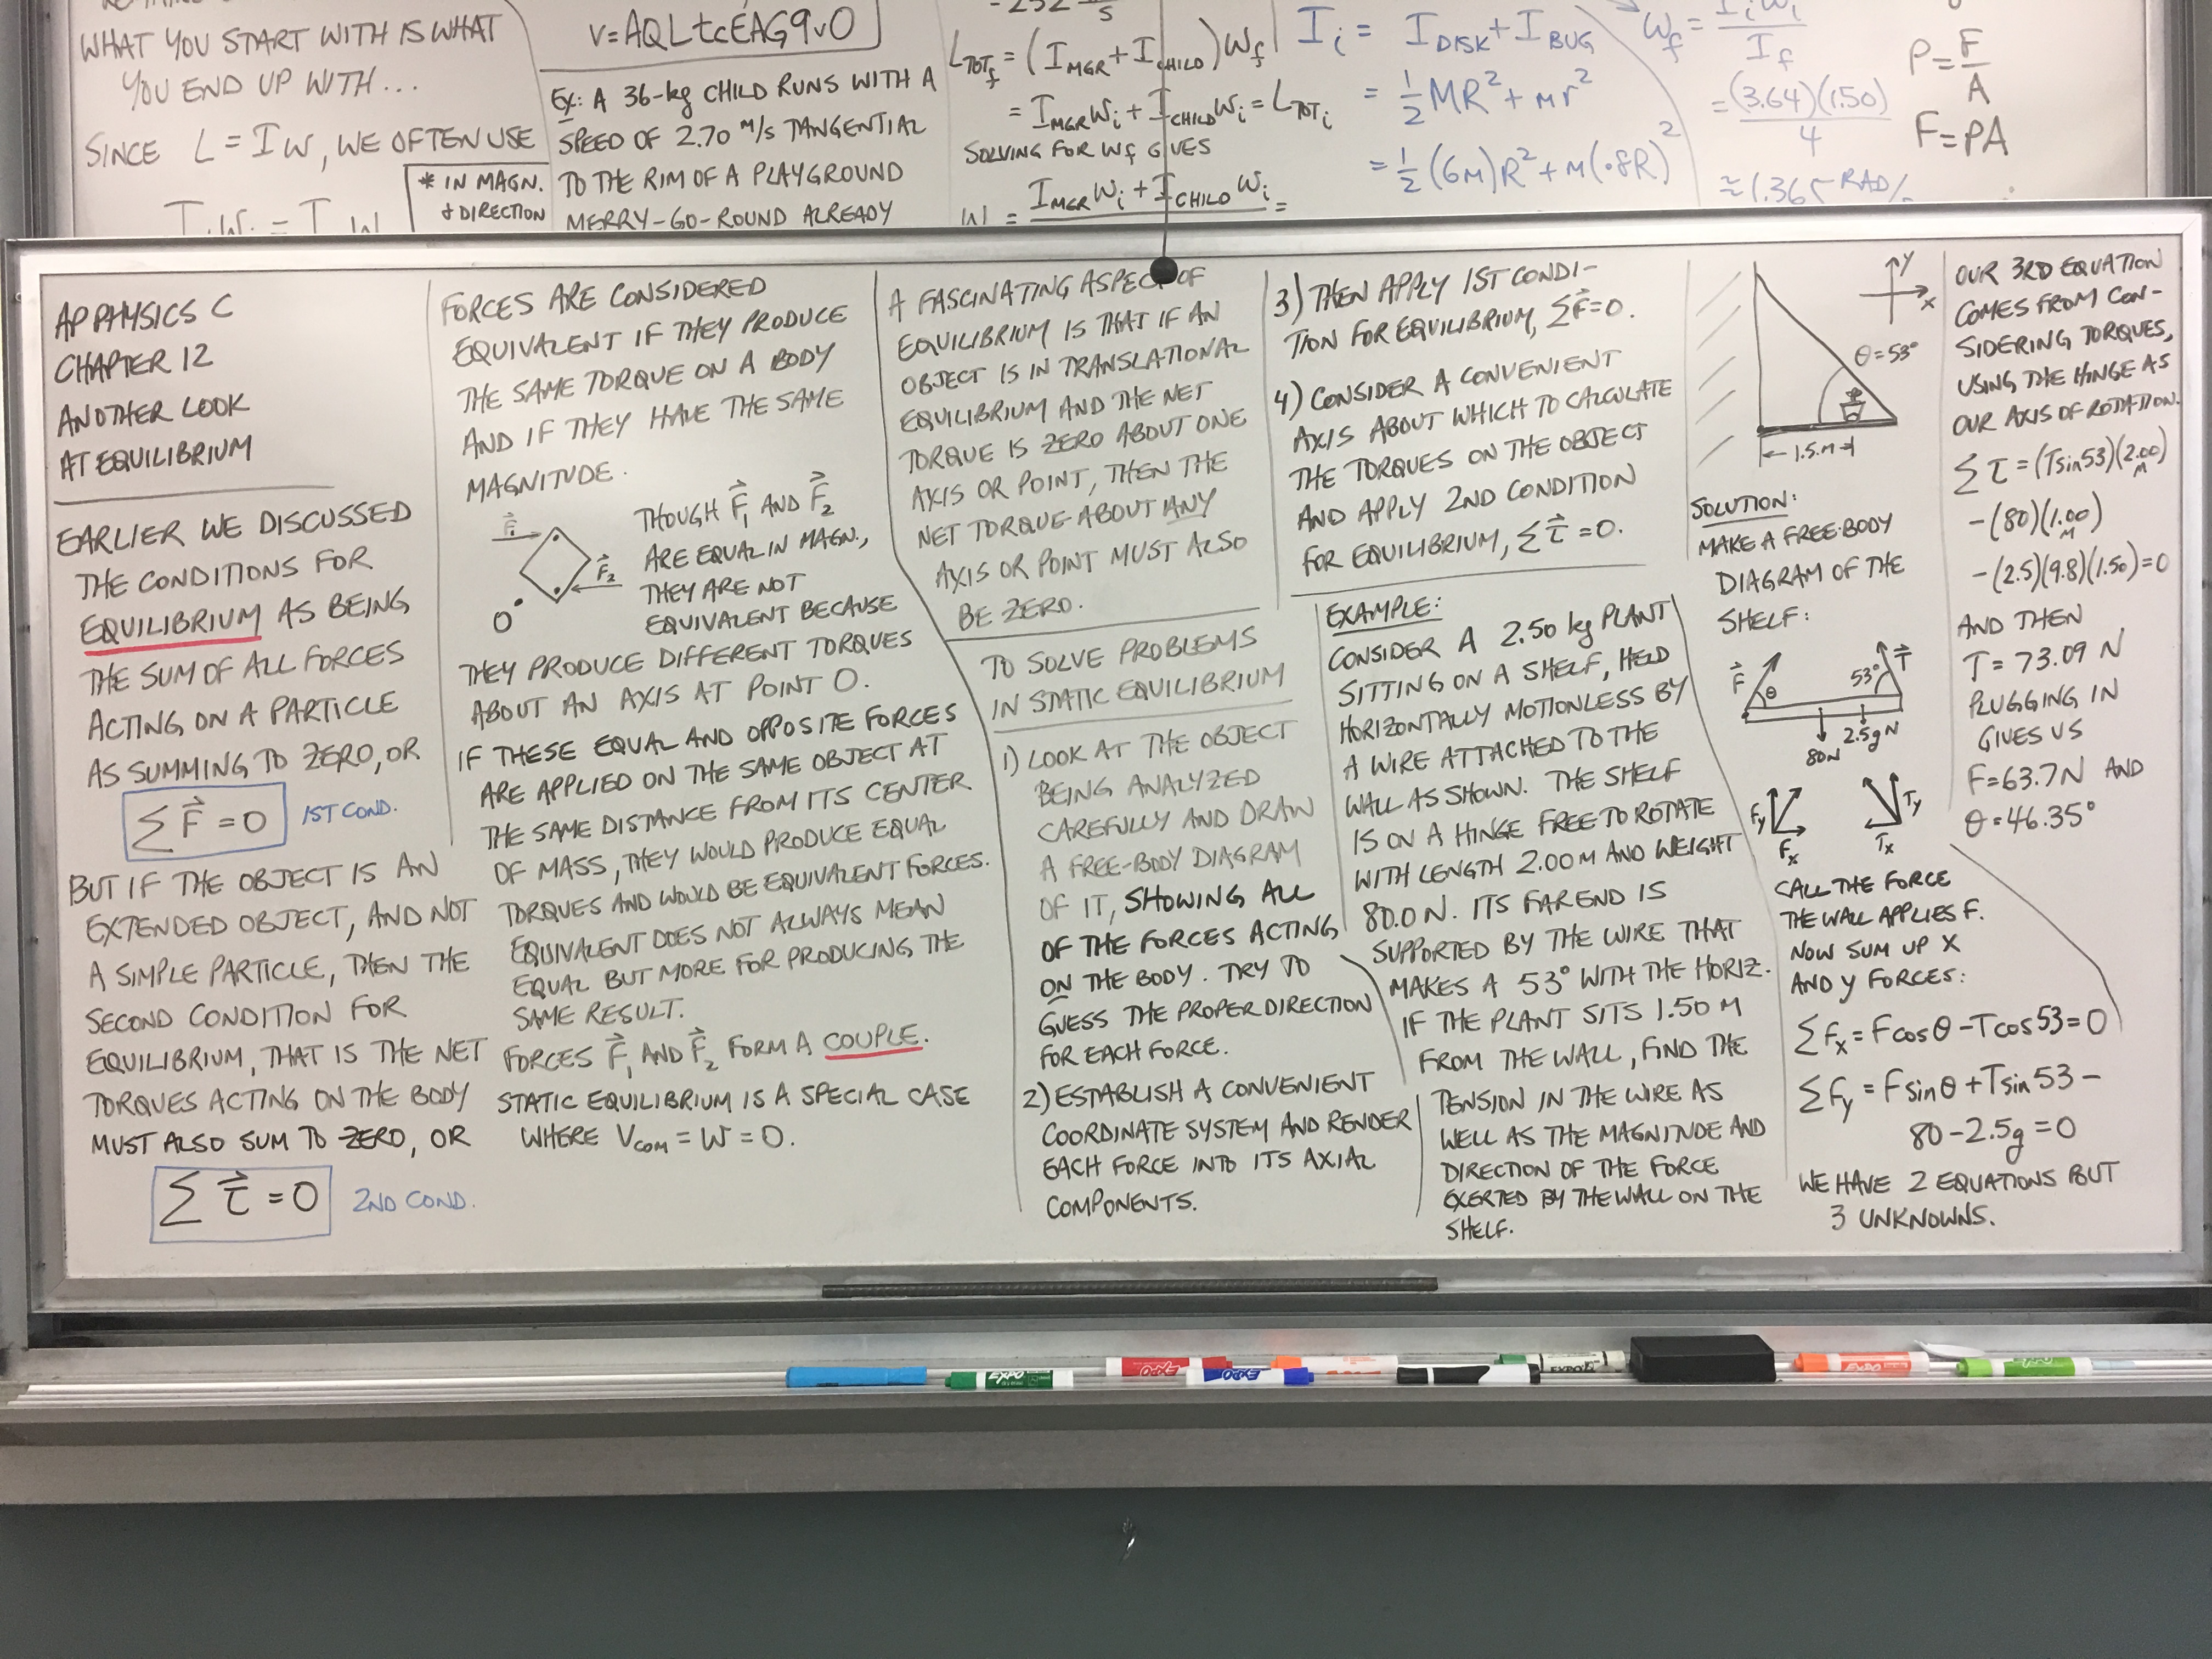 WHAT YOU START WITH IS WHAT
YOU END UP WITH...
SINCE L = Iω, WE OFTEN USE
* IN MAGN.
& DIRECTION
v=AQLtcEAG9vO
EX: A 36-kg CHILD RUNS WITH A
SPEED OF 2.70 m/s TANGENTIAL
TO THE RIM OF A PLAYGROUND
MERRY-GO-ROUND ALREADY
L_TOT_f = (I_MGR + I_CHILD) ω_f
= I_MGR ω_i + I_CHILD ω_i = L_TOT_i
SOLVING FOR ω_f GIVES
I_MGR ω_i + I_CHILD ω_i =
I_i = I_DISK + I_BUG
= 1/2 MR² + mr²
= 1/2 (6M)R² + M(.8R)²
ω_f = I_i ω_i / I_f
= (3.64)(1.50) / 4
≈ 1.365 RAD/
P = F/A
F = PA
AP PHYSICS C
CHAPTER 12
ANOTHER LOOK
AT EQUILIBRIUM
EARLIER WE DISCUSSED
THE CONDITIONS FOR
EQUILIBRIUM AS BEING
THE SUM OF ALL FORCES
ACTING ON A PARTICLE
AS SUMMING TO ZERO, OR
∑F⃗ = 0 1ST COND.
BUT IF THE OBJECT IS AN
EXTENDED OBJECT, AND NOT
A SIMPLE PARTICLE, THEN THE
SECOND CONDITION FOR
EQUILIBRIUM, THAT IS THE NET
TORQUES ACTING ON THE BODY
MUST ALSO SUM TO ZERO, OR
∑τ⃗ = 0 2ND COND.
FORCES ARE CONSIDERED
EQUIVALENT IF THEY PRODUCE
THE SAME TORQUE ON A BODY
AND IF THEY HAVE THE SAME
MAGNITUDE.
F⃗₁
F⃗₂
O
THOUGH F⃗₁ AND F⃗₂
ARE EQUAL IN MAGN.,
THEY ARE NOT
EQUIVALENT BECAUSE
THEY PRODUCE DIFFERENT TORQUES
ABOUT AN AXIS AT POINT O.
IF THESE EQUAL AND OPPOSITE FORCES
ARE APPLIED ON THE SAME OBJECT AT
THE SAME DISTANCE FROM ITS CENTER
OF MASS, THEY WOULD PRODUCE EQUAL
TORQUES AND WOULD BE EQUIVALENT FORCES.
EQUIVALENT DOES NOT ALWAYS MEAN
EQUAL BUT MORE FOR PRODUCING THE
SAME RESULT.
FORCES F⃗₁ AND F⃗₂ FORM A COUPLE.
STATIC EQUILIBRIUM IS A SPECIAL CASE
WHERE V_COM = ω = 0.
A FASCINATING ASPECT OF
EQUILIBRIUM IS THAT IF AN
OBJECT IS IN TRANSLATIONAL
EQUILIBRIUM AND THE NET
TORQUE IS ZERO ABOUT ONE
AXIS OR POINT, THEN THE
NET TORQUE ABOUT ANY
AXIS OR POINT MUST ALSO
BE ZERO.
TO SOLVE PROBLEMS
IN STATIC EQUILIBRIUM
1) LOOK AT THE OBJECT
BEING ANALYZED
CAREFULLY AND DRAW
A FREE-BODY DIAGRAM
OF IT, SHOWING ALL
OF THE FORCES ACTING
ON THE BODY. TRY TO
GUESS THE PROPER DIRECTION
FOR EACH FORCE.
2) ESTABLISH A CONVENIENT
COORDINATE SYSTEM AND RENDER
EACH FORCE INTO ITS AXIAL
COMPONENTS.
3) THEN APPLY 1ST CONDI-
TION FOR EQUILIBRIUM, ∑F⃗=0.
4) CONSIDER A CONVENIENT
AXIS ABOUT WHICH TO CALCULATE
THE TORQUES ON THE OBJECT
AND APPLY 2ND CONDITION
FOR EQUILIBRIUM, ∑τ⃗ = 0.
EXAMPLE:
CONSIDER A 2.50 kg PLANT
SITTING ON A SHELF, HELD
HORIZONTALLY MOTIONLESS BY
A WIRE ATTACHED TO THE
WALL AS SHOWN. THE SHELF
IS ON A HINGE FREE TO ROTATE
WITH LENGTH 2.00 M AND WEIGHT
80.0 N. ITS FAR END IS
SUPPORTED BY THE WIRE THAT
MAKES A 53° WITH THE HORIZ.
IF THE PLANT SITS 1.50 M
FROM THE WALL, FIND THE
TENSION IN THE WIRE AS
WELL AS THE MAGNITUDE AND
DIRECTION OF THE FORCE
EXERTED BY THE WALL ON THE
SHELF.
Y
X
θ=53°
1.5M
SOLUTION:
MAKE A FREE-BODY
DIAGRAM OF THE
SHELF:
F⃗ θ 53° T⃗
80N 2.5g N
Fy Fx Ty Tx
CALL THE FORCE
THE WALL APPLIES F.
NOW SUM UP X
AND Y FORCES:
∑Fx = F cos θ - T cos 53 = 0
∑Fy = F sin θ + T sin 53 -
80 - 2.5g = 0
WE HAVE 2 EQUATIONS BUT
3 UNKNOWNS.
OUR 3RD EQUATION
COMES FROM CON-
SIDERING TORQUES,
USING THE HINGE AS
OUR AXIS OF ROTATION.
∑τ = (T sin 53)(2.00 M)
- (80)(1.00 M)
- (2.5)(9.8)(1.50) = 0
AND THEN
T = 73.09 N
PLUGGING IN
GIVES US
F = 63.7 N AND
θ = 46.35°
EXPO
EXPO
EXPO
EXPO
EXPO